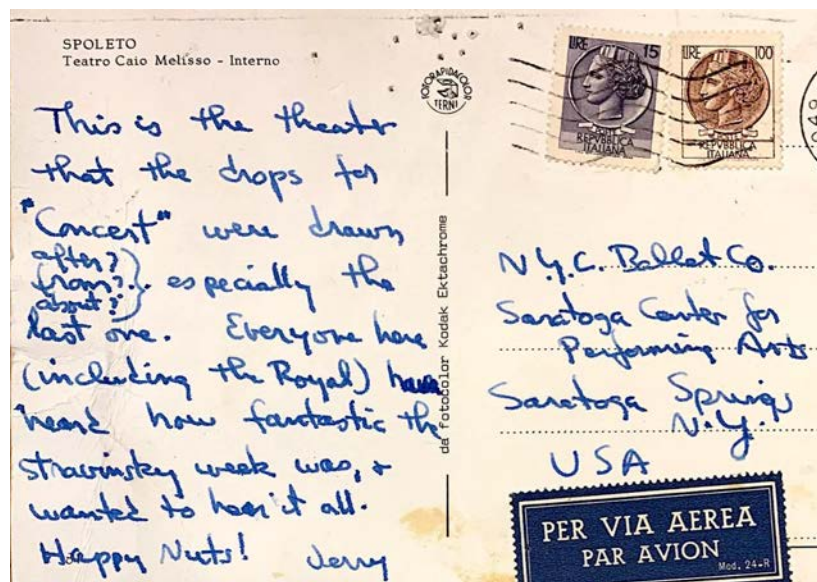 SPOLETO
Teatro Caio Melisso - Interno
This is the theater
that the drops for
"Concert" were drawn
after?
from?.. especially the
about?
last one. Everyone here
(including the Royal) have
heard how fantastic the
Stravinsky week was, &
wanted to hear it all.
Happy Nuts! Jerry
FOTORAPIDACOLOR
TERNI
da fotocolor Kodak Ektachrome
LIRE 15
POSTE
REPVBBLICA
ITALIANA
LIRE 100
POSTE
REPVBBLICA
ITALIANA
N.Y.C. Ballet Co.
Saratoga Center for
Performing Arts
Saratoga Springs
N.Y.
USA
PER VIA AEREA
PAR AVION
Mod. 24-R